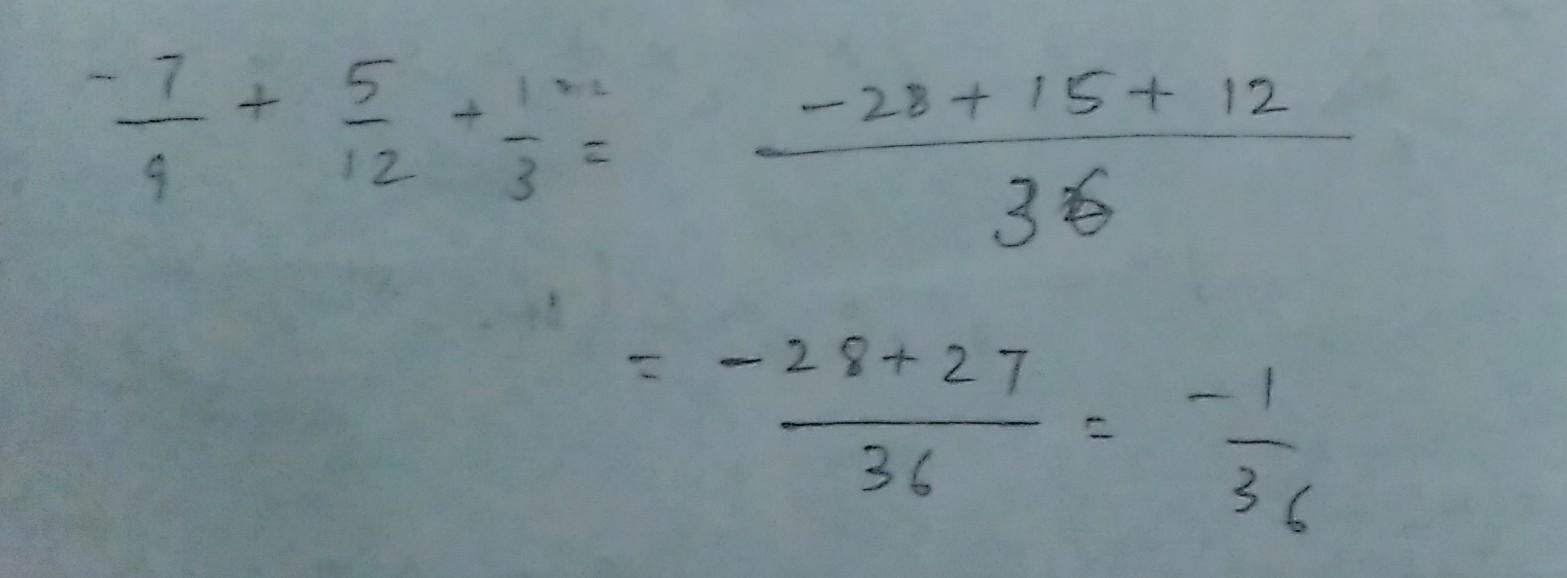 -7/9 + 5/12 + 1/3 = (-28 + 15 + 12)/36
= (-28 + 27)/36 = -1/36